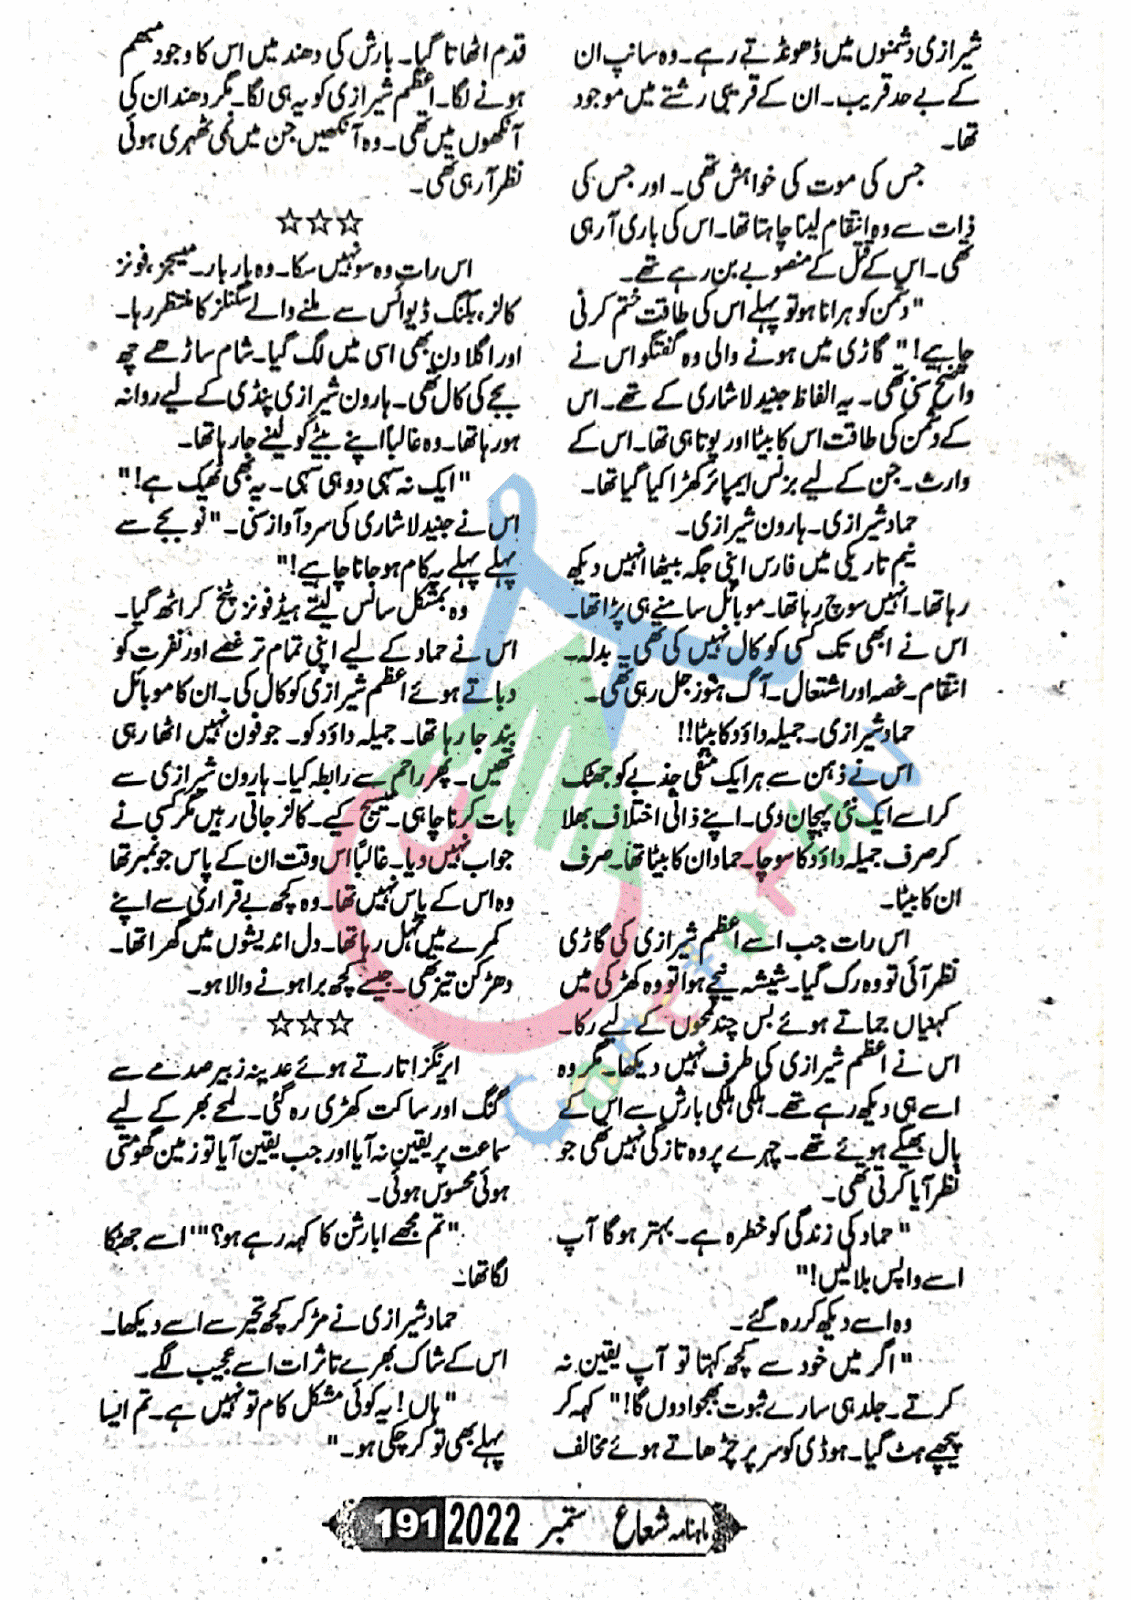 شیرازی دشمنوں میں ڈھونڈتے رہے۔ وہ سانپ ان
کے بے حد قریب۔ ان کے قریبی رشتے میں موجود
تھا۔
جس کی موت کی خواہش تھی۔ اور جس کی
ذات سے وہ انتقام لینا چاہتا تھا۔ اس کی باری آ رہی
تھی۔ اس کے قتل کے منصوبے بن رہے تھے۔
"دشمن کو ہرانا ہو تو پہلے اس کی طاقت ختم کرنی
چاہیے!" گاڑی میں ہونے والی وہ گفتگو اس نے
واضح سنی تھی۔ یہ الفاظ جنید لاشاری کے تھے۔ اس
کے دشمن کی طاقت اس کا بیٹا اور پوتا ہی تھا۔ اس کے
وارث۔ جن کے لیے بزنس ایمپائر کھڑا کیا گیا تھا۔
حماد شیرازی۔ ہارون شیرازی۔
نیم تاریکی میں فارس اپنی جگہ بیٹھا انہیں دیکھ
رہا تھا۔ انہیں سوچ رہا تھا۔ موبائل سامنے ہی پڑا تھا۔
اس نے ابھی تک کسی کو کال نہیں کی تھی۔ بدلہ۔
انتقام۔ غصہ اور اشتعال۔ آگ ہنوز جل رہی تھی۔
حماد شیرازی۔ جمیلہ داؤد کا بیٹا!!
اس نے ذہن سے ہر ایک منفی جذبے کو جھٹک
کر اسے ایک نئی پہچان دی۔ اپنے ذاتی اختلاف بھلا
کر صرف جمیلہ داؤد کا سوچا۔ حماد ان کا بیٹا تھا۔ صرف
ان کا بیٹا۔
اس رات جب اسے اعظم شیرازی کی گاڑی
نظر آئی تو وہ رک گیا۔ شیشہ نیچے ہوا تو وہ کھڑکی میں
کہنیاں جماتے ہوئے بس چند لمحوں کے لیے رکا۔
اس نے اعظم شیرازی کی طرف نہیں دیکھا۔ مگر وہ
اسے ہی دیکھ رہے تھے۔ ہلکی ہلکی بارش سے اس کے
بال بھیگے ہوئے تھے۔ چہرے پر وہ تازگی نہیں تھی جو
نظر آیا کرتی تھی۔
"حماد کی زندگی کو خطرہ ہے۔ بہتر ہو گا آپ
اسے واپس بلا لیں!"
وہ اسے دیکھ کر رہ گئے۔
"اگر میں خود سے کچھ کہتا تو آپ یقین نہ
کرتے۔ جلد ہی سارے ثبوت بھجوا دوں گا!" کہہ کر
پیچھے ہٹ گیا۔ ہوڈی کو سر پر چڑھاتے ہوئے مخالف
قدم اٹھاتا گیا۔ بارش کی دھند میں اس کا وجود مبہم
ہونے لگا۔ اعظم شیرازی کو یہ ہی لگا۔ مگر دھند ان کی
آنکھوں میں تھی۔ وہ آنکھیں جن میں نمی ٹھہری ہوئی
نظر آ رہی تھی۔
☆☆☆
اس رات وہ سو نہیں سکا۔ وہ بار بار۔ میسجز، فونز
کالز، بگنگ ڈیوائس سے ملنے والے سگنلز کا منتظر رہا۔
اور اگلا دن بھی اسی میں لگ گیا۔ شام ساڑھے چھ
بجے کی کال تھی۔ ہارون شیرازی پنڈی کے لیے روانہ
ہو رہا تھا۔ وہ غالباً اپنے بیٹے کو لینے جا رہا تھا۔
"ایک نہ سہی دو ہی سہی۔ یہ بھی ٹھیک ہے!"
اس نے جنید لاشاری کی سرد آواز سنی۔ "نو بجے سے
پہلے پہلے یہ کام ہو جانا چاہیے!"
وہ بمشکل سانس لیتے ہیڈ فونز پٹخ کر اٹھ گیا۔
اس نے حماد کے لیے اپنی تمام تر غصے اور نفرت کو
دباتے ہوئے اعظم شیرازی کو کال کی۔ ان کا موبائل
بند جا رہا تھا۔ جمیلہ داؤد کو۔ جو فون نہیں اٹھا رہی
تھیں۔ پھر راحم سے رابطہ کیا۔ ہارون شیرازی سے
بات کرنا چاہی۔ میسج کیے۔ کالز جاتی رہیں مگر کسی نے
جواب نہیں دیا۔ غالباً اس وقت ان کے پاس جو نمبر تھا
وہ اس کے پاس نہیں تھا۔ وہ کچھ بے قراری سے اپنے
کمرے میں ٹہل رہا تھا۔ دل اندیشوں میں گھرا تھا۔
دھڑکن تیز تھی۔ جیسے کچھ برا ہونے والا ہو۔
☆☆☆
ایرنگز اتارتے ہوئے عدینہ زبیر صدمے سے
گنگ اور ساکت کھڑی رہ گئی۔ لمحے بھر کے لیے
سماعت پر یقین نہ آیا اور جب یقین آیا تو زمین گھومتی
ہوئی محسوس ہوئی۔
"تم مجھے ابارشن کا کہہ رہے ہو؟" اسے جھٹکا
لگا تھا۔
حماد شیرازی نے مڑ کر کچھ تحیر سے اسے دیکھا۔
اس کے شاک بھرے تاثرات اسے عجیب لگے۔
"ہاں! یہ کوئی مشکل کام تو نہیں ہے۔ تم ایسا
پہلے بھی تو کر چکی ہو۔"
ماہنامہ شعاع ستمبر 2022 191